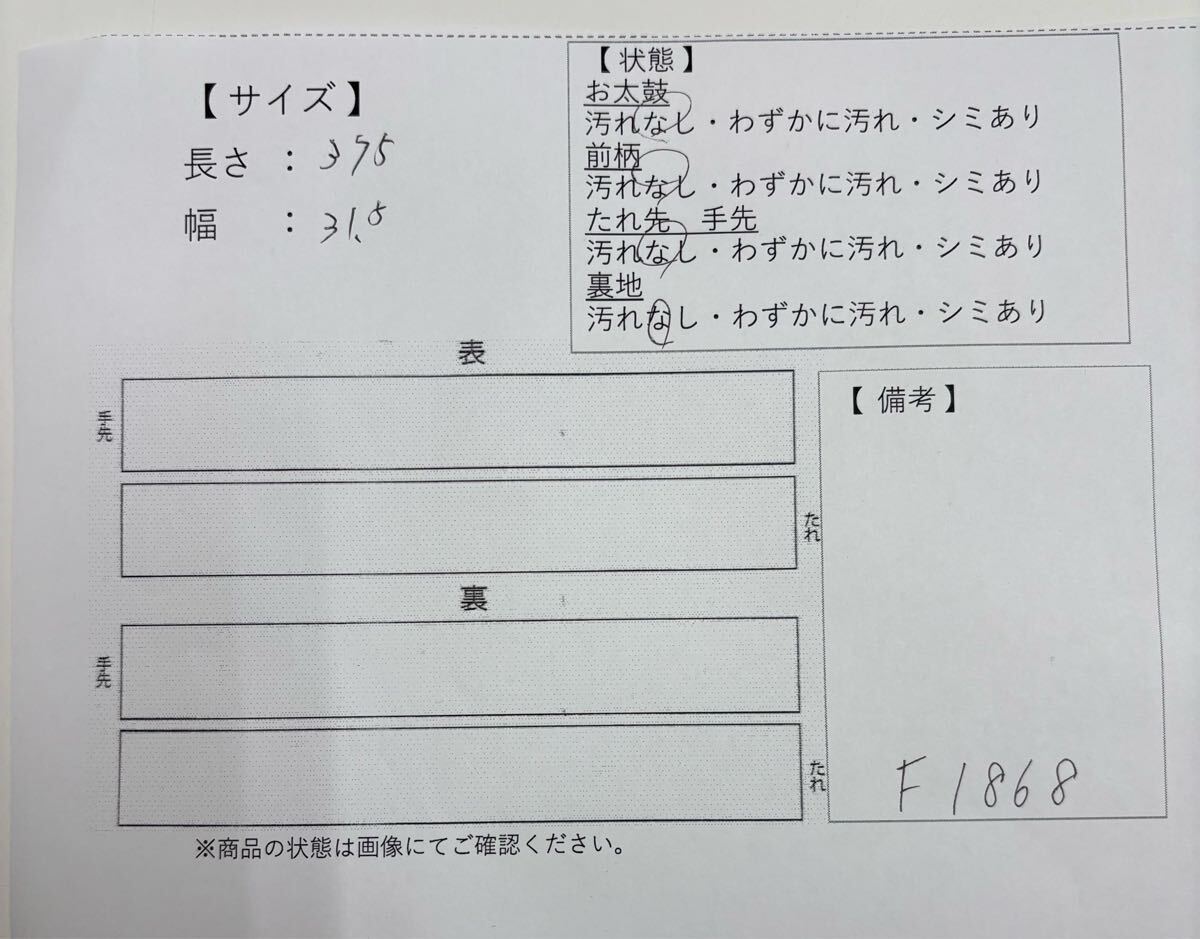 【 サイズ 】
長さ ： 375
幅 ： 31.5
【 状態 】
お太鼓
汚れなし・わずかに汚れ・シミあり
前柄
汚れなし・わずかに汚れ・シミあり
たれ先 手先
汚れなし・わずかに汚れ・シミあり
裏地
汚れなし・わずかに汚れ・シミあり
表
手先
たれ
裏
手先
たれ
【 備考 】
F1868
※商品の状態は画像にてご確認ください。